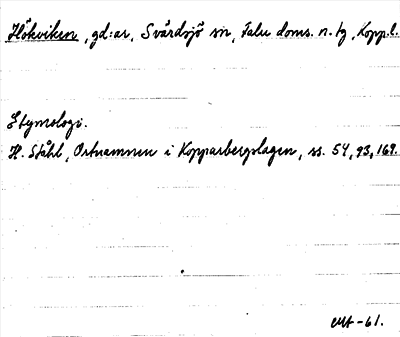 Hökviken, gd:ar, Svärdsjö sn, Falu doms. n. tg, Kopp.l.
Etymologi.
H. Ståhl, Ortnamnen i Kopparbergslagen, ss. 54, 93, 169.
-61.